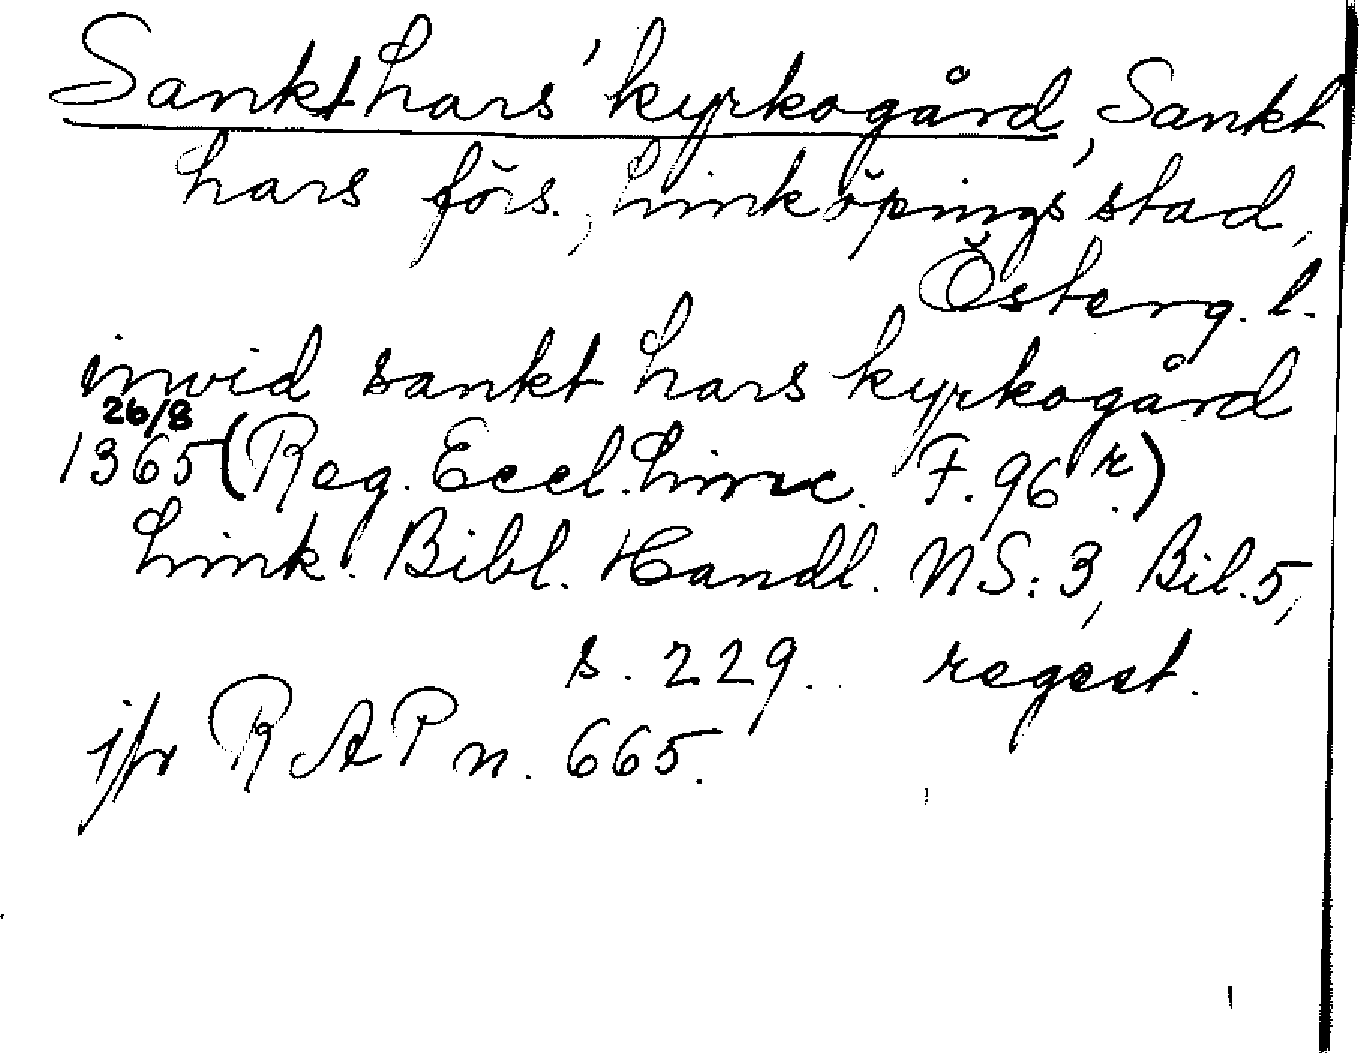 Sankt Lars' kyrkogård, Sankt
Lars förs., Linköpings stad,
Österg. l.
invid sankt Lars kyrkogård
26/8
1365 (Reg. Eccl. Linc. F. 96 r.)
Link. Bibl. Handl. NS: 3, Bil. 5,
s. 229. regest.
jfr RAP n. 665.